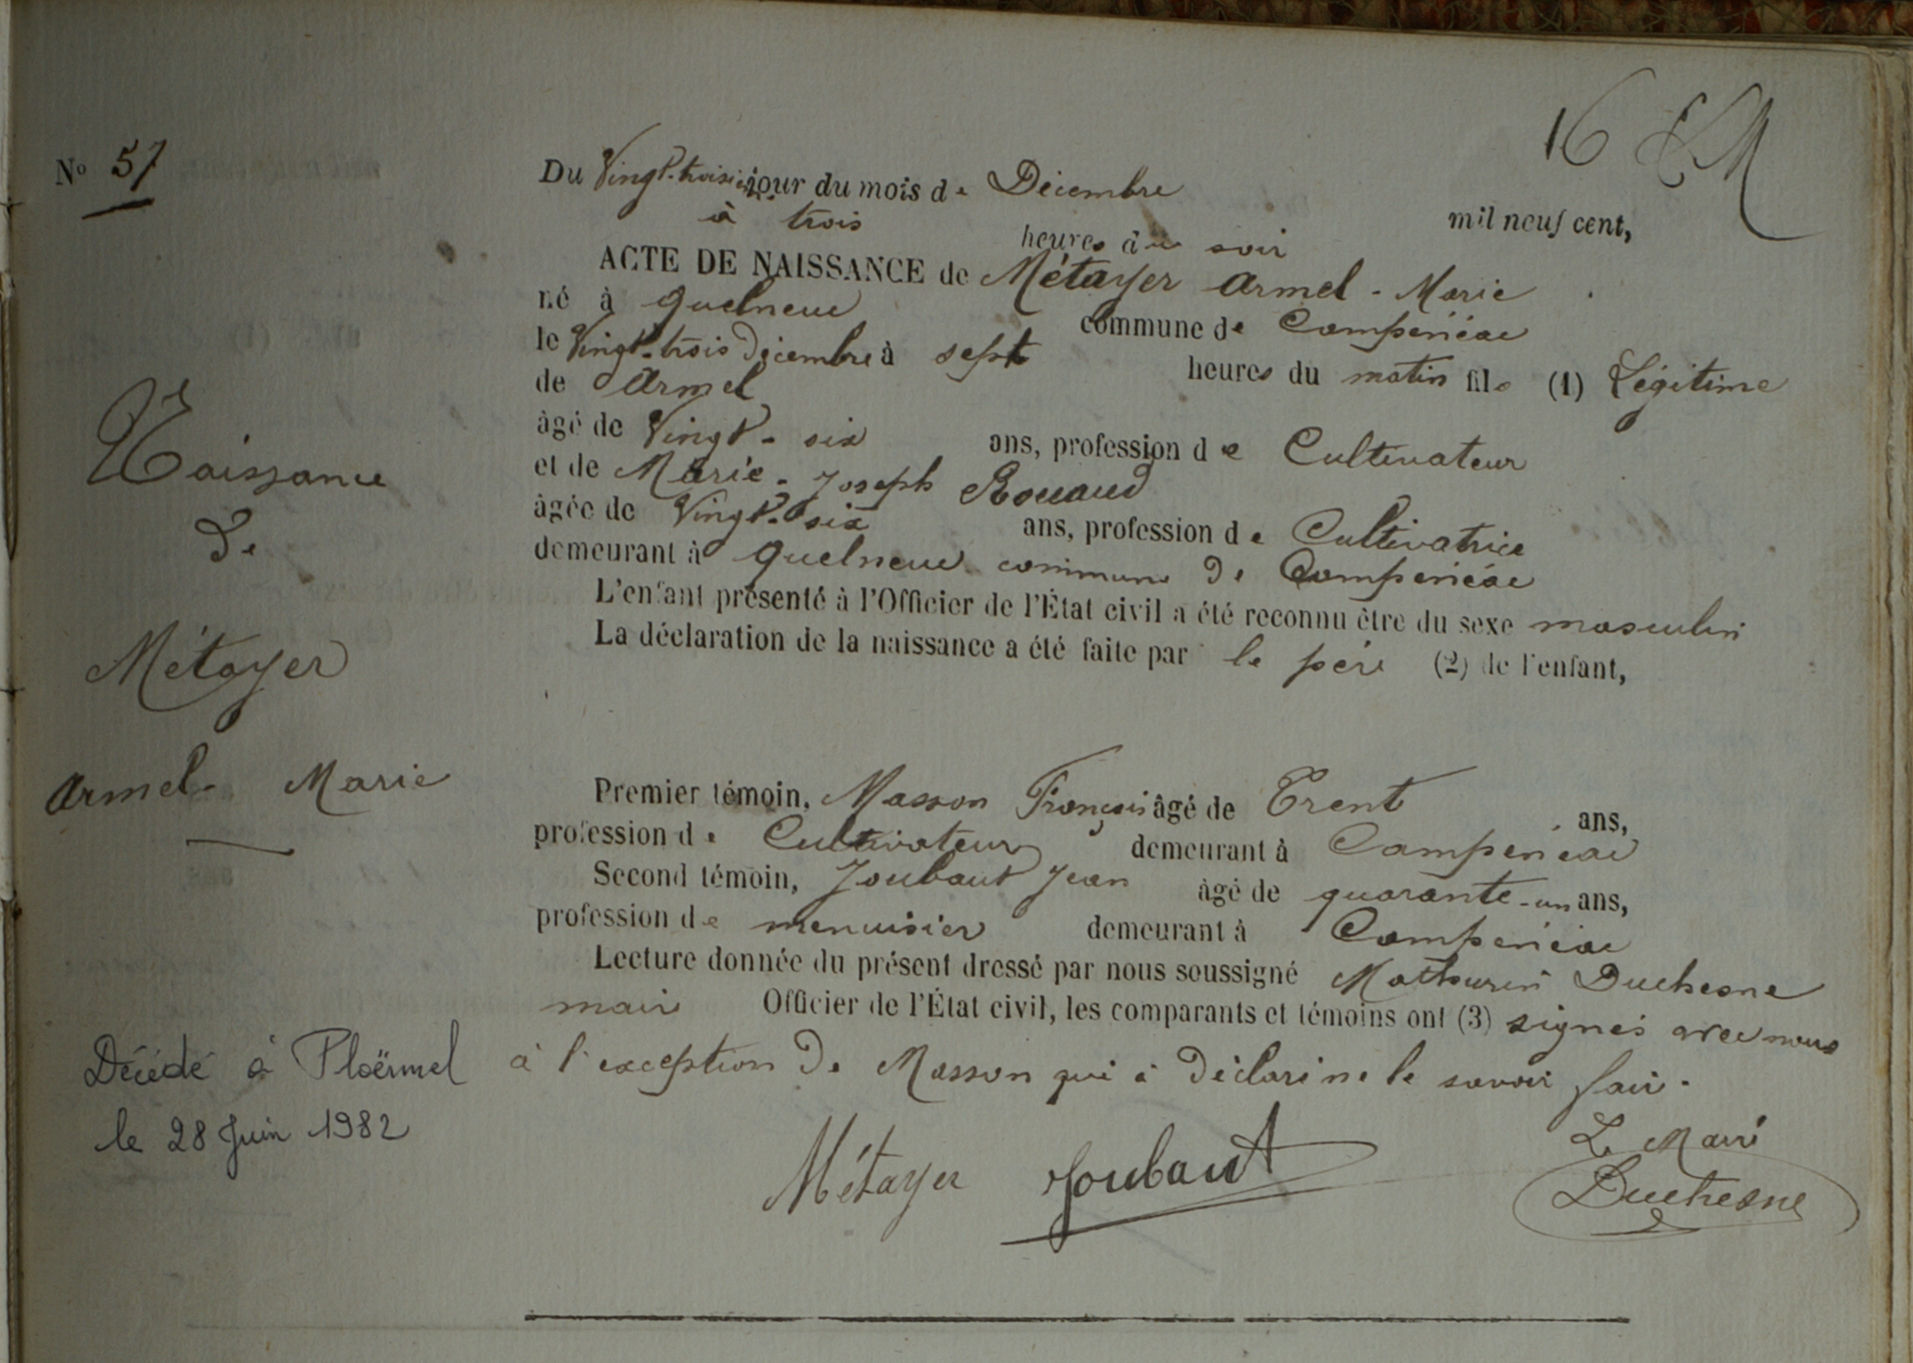 16
No 57
Du Vingt-troisième jour du mois de Décembre mil neuf cent,
à trois heures du soir
ACTE DE NAISSANCE de Métayer Armel-Marie
né à Quelneuc commune de Campénéac
le Vingt-trois Décembre à sept heures du matin fils (1) Légitime
de Armel
âgé de Vingt-six ans, profession de Cultivateur
et de Marie-Joseph Rouaud
âgée de Vingt-six ans, profession de Cultivatrice
demeurant à Quelneuc commune de Campénéac
L'enfant présenté à l'Officier de l'État civil a été reconnu être du sexe masculin
La déclaration de la naissance a été faite par le père (2) de l'enfant,
Naissance
De
Métayer
Armel-Marie
Premier témoin, Masson François âgé de Trent ans,
profession de Cultivateur demeurant à Campénéac
Second témoin, Joubaud Jean âgé de quarante-un ans,
profession de menuisier demeurant à Campénéac
Lecture donnée du présent dressé par nous soussigné Mathurin Duchesne
maire Officier de l'État civil, les comparants et témoins ont (3) signés avec nous
à l'exception de Masson qui a déclaré ne le savoir fair.
Décédé à Ploërmel
le 28 Juin 1982
Le Maire
Métayer Joubaut Duchesne